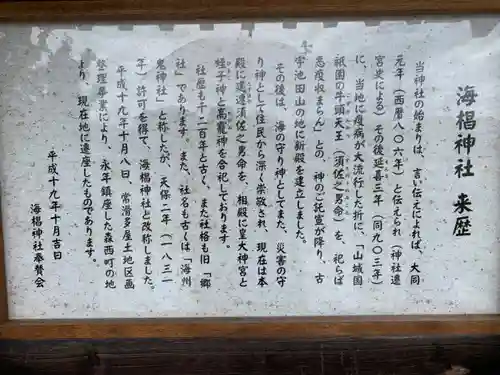 海椙神社 来歴
当神社の始まりは、言い伝えによれば、大同
元年(西暦八〇六年)と伝えられ(神社遷
宮史による)その後延喜三年(同九〇三年)
に、当地に疫病が大流行した折に、「山城国
祇園の牛頭天王(須佐之男命)を、祀らば
悪疫収まらん」との、神のご託宣が降り、古
宇池田山の地に新殿を建立しました。
その後は、海の守り神としてまた、災害の守
り神として住民から深く崇敬され、現在は本
殿に建速須佐之男命を、相殿に皇大神宮と
蛭子神と高龗神を合祀しております。
社歴も千二百年と古く、また社格も旧「郷
社」であります。また、社名も古くは「海州
鬼神社」と称したが、天保二年(一八三一
年)許可を得て、海椙神社と改称しました。
平成十九年十月八日、常滑多屋土地区画
整理事業により、永年鎮座した森西町の地
より、現在地に遷座したものであります。
平成十九年十月吉日
海椙神社奉賛会